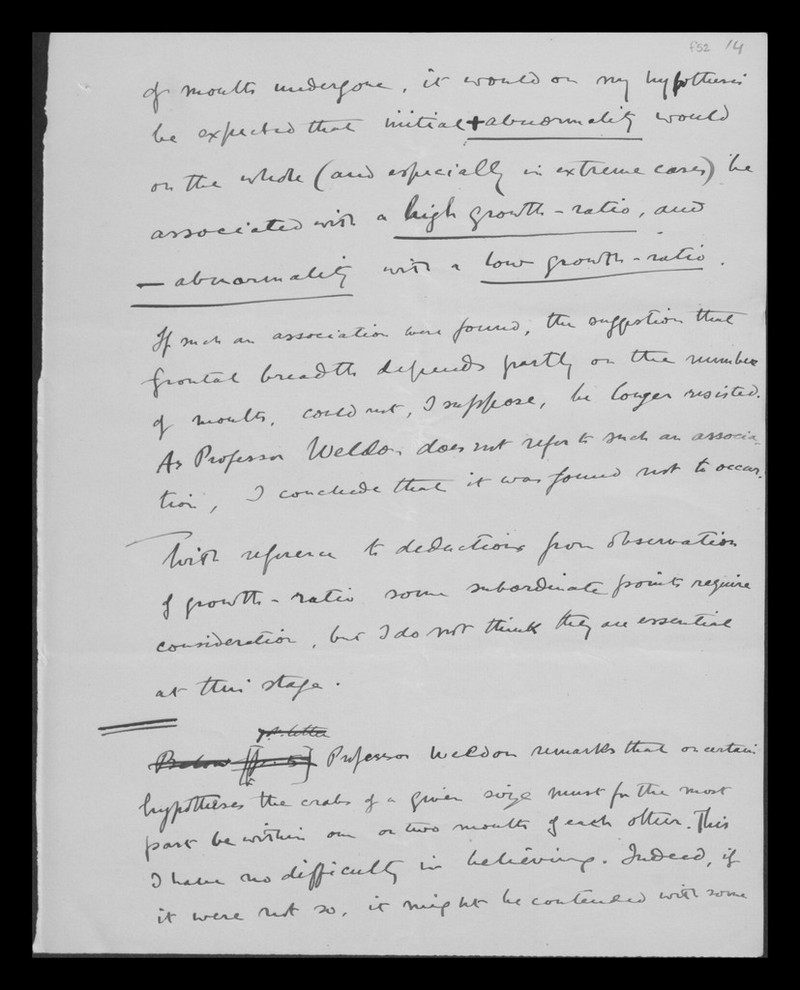 f52 14
of moults undergone, it would on my hypothesis
be expected that initial + abnormality would
on the whole (and especially in extreme cases) be
associated with a high growth-ratio, and
- abnormality with a low growth-ratio.
If such an association were found, the suggestion that
frontal breadth depends partly on the number
of moults, could not, I suppose, be longer resisted.
As Professor Weldon does not refer to such an associa-
tion, I conclude that it was found not to occur.
With reference to deductions from observation
of growth-ratio some subordinate points require
consideration, but I do not think they are essential
at this stage.
letter
Below [p. 5] Professor Weldon remarks that on certain
hypotheses the crabs of a given size must for the most
part be within one or two moults of each other. This
I have no difficulty in believing. Indeed, if
it were not so, it might be contended with some